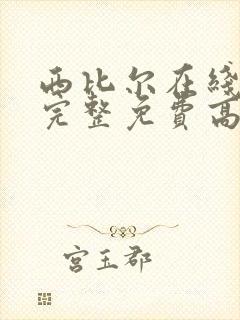 西比尔在线
完整免费高
宫玉郡